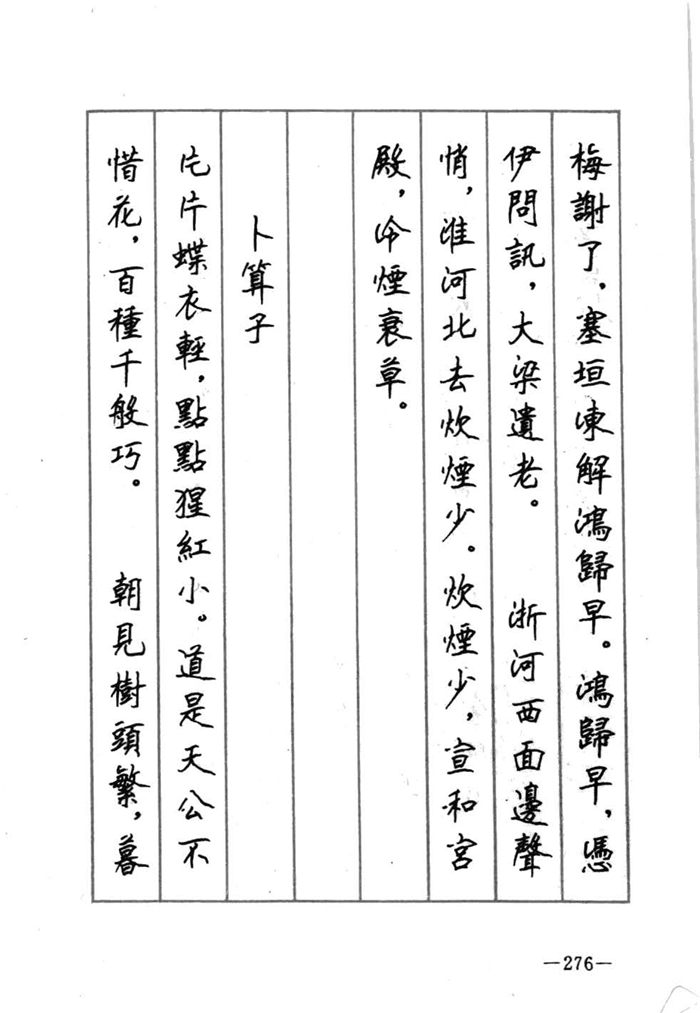 梅謝了，塞垣凍解鴻歸早。鴻歸早，憑
伊問訊，大梁遺老。　浙河西面邊聲
悄，淮河北去炊煙少。炊煙少，宣和宮
殿，冷煙衰草。
卜算子
片片蝶衣輕，點點猩紅小。道是天公不
惜花，百種千般巧。　朝見樹頭繁，暮
—276—